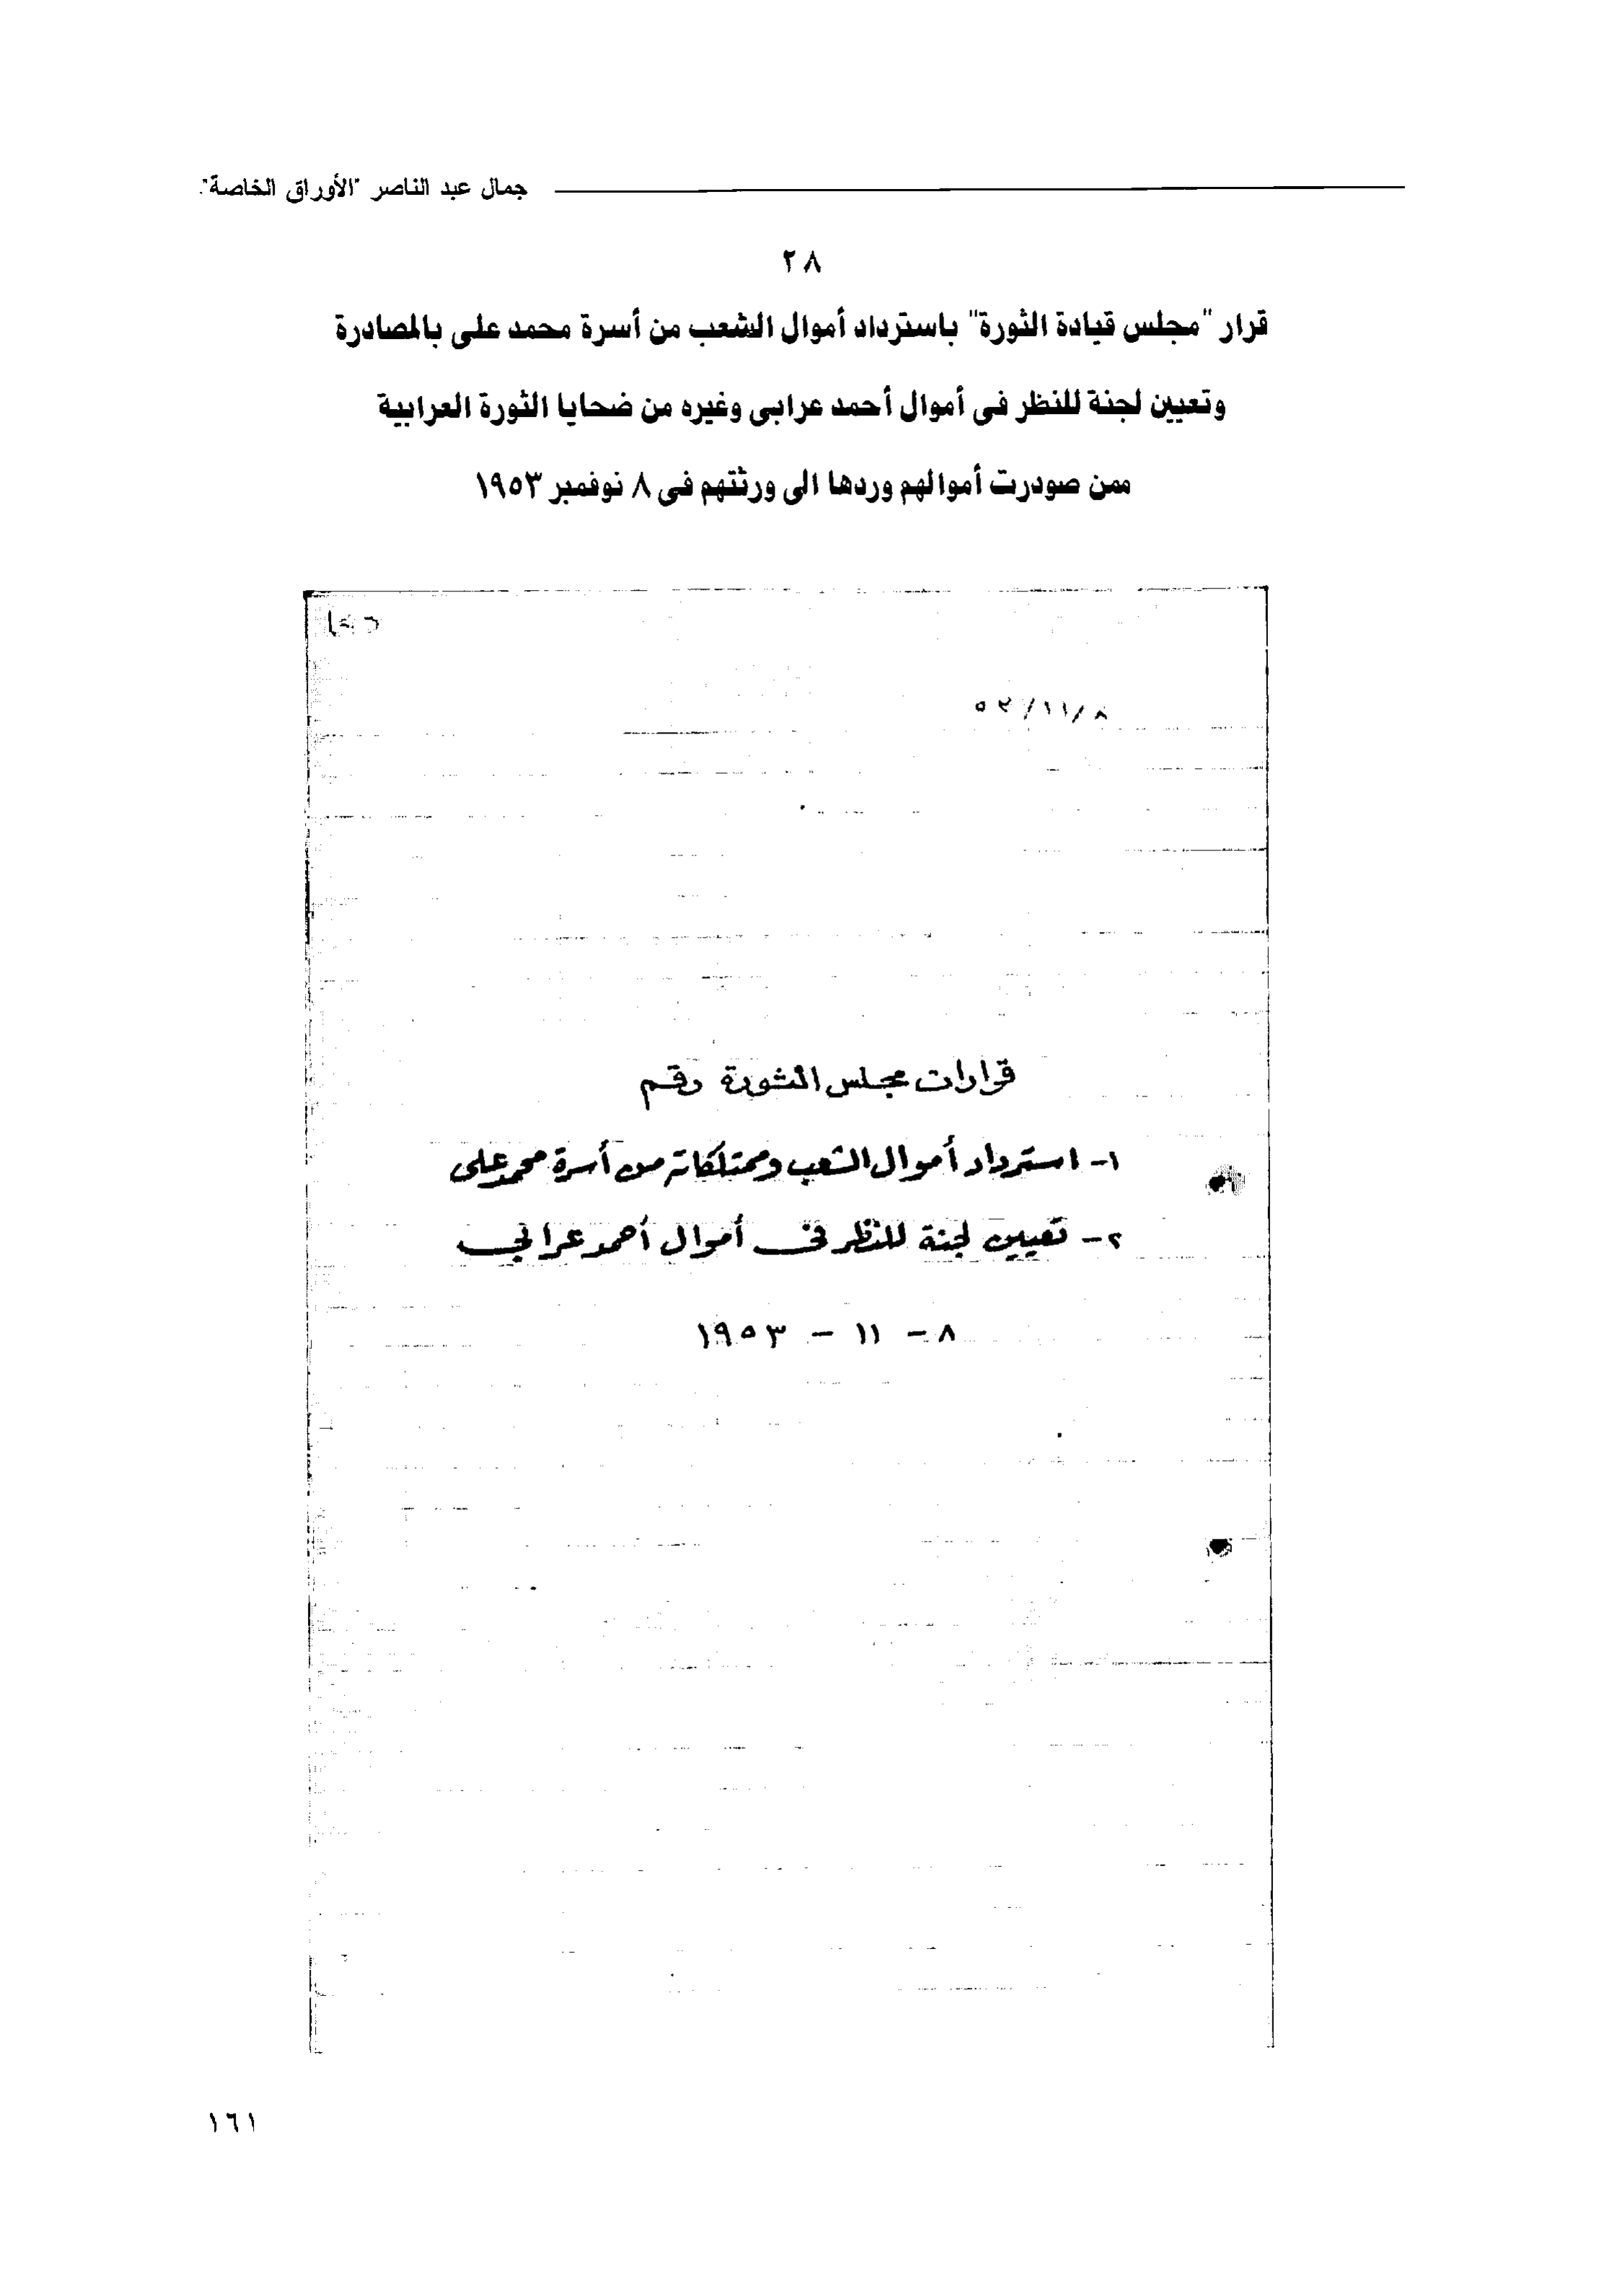 جمال عبد الناصر "الأوراق الخاصة".
٢٨
قرار "مجلس قيادة الثورة" باسترداد أموال الشعب من أسرة محمد على بالمصادرة
وتعيين لجنة للنظر فى أموال أحمد عرابى وغيره من ضحايا الثورة العرابية
ممن صودرت أموالهم وردها الى ورثتهم فى ٨ نوفمبر ١٩٥٣
٨/١١/٥٣
قرارات مجلس الثورة رقم
١- استرداد أموال الشعب وممتلكاته من أسرة محمد على
٢- تعيين لجنة للنظر فى أموال أحمد عرابي
٨ - ١١ - ١٩٥٣
١٦١